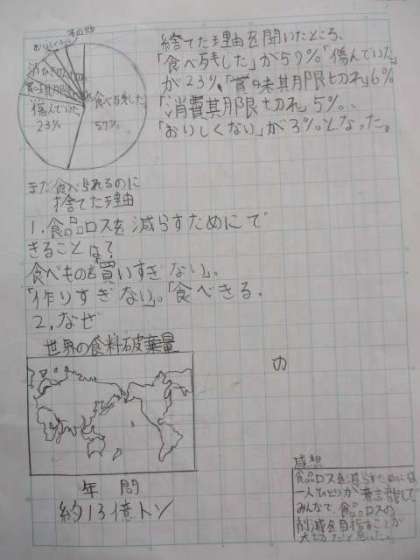 捨てた理由を聞いたところ、
「食べ残した」が57%「傷んでいた」
が23%、「賞味期限切れ」6%
「消費期限切れ5%、
「おいしくない」が3%となった。
食べ残した
57%
傷んでいた
23%
まだ食べられるのに
捨てた理由
1.食品ロスを減らすためにで
きることは?
食べものを買いすぎない」、
「作りすぎない」。「食べきる.
2.なぜ
世界の食料破棄量
の
年間
約13億トン
感想
食品ロスを減らすためには
一人ひとりが意識して
みんなで食品ロスの
削減を目指すことが
大切だと思った。